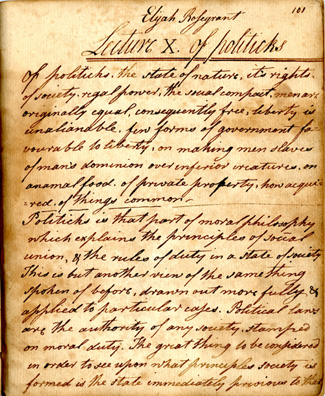 Elijah Rosegrant
101
Lecture X. of politicks
Of politicks. the state of nature. it's rights.
of society. regal power. the social compact. men are
originally equal, consequently free. liberty is
unalienable. few forms of government fa-
vourable to liberty. on making men slaves
of man's dominion over inferior creatures. on
anamal food. of private property, how acqui-
-red. of things common.
Politicks is that part of moral philosophy
which explains the principles of social
union, & the rules of duty in a State of society
This is but another view of the same thing
spoken of before, drawn out more fully &
applied to particular cases. Political laws
are the authority of any society, stamped
on moral duty. The great thing to be considered
in order to see upon what principles society is
formed is the state immediately previous to that